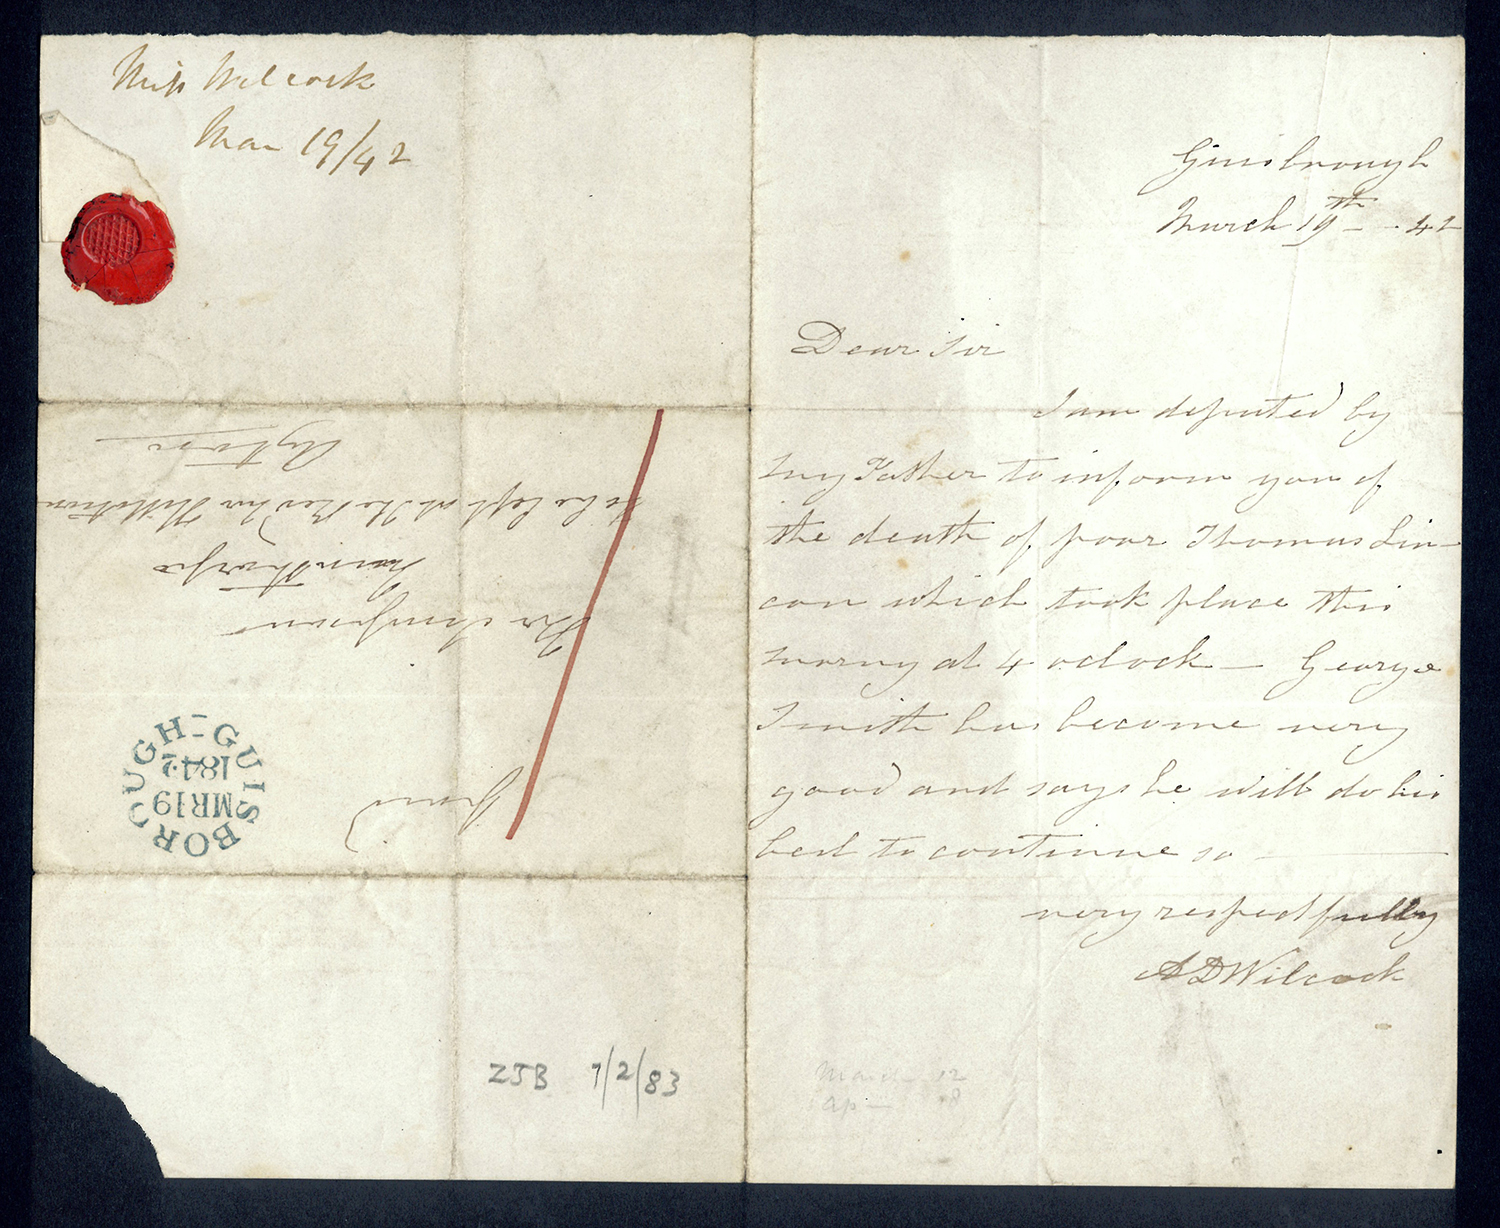 Miss Wilcock
Mar 19/42
Guisbrough
March 19th - - 42
Dear Sir
I am deputed by
my Father to inform you of
the death of poor Thomas Lin-
con which took place this
morng at 4 oclock — George
Smith has become very
good and says he will do his
best to continue so
very respectfully
A D Wilcock
Paid
Mr Simpson
Nunthorpe
to be left at the Red Inn
Ayton
GUISBOROUGH
MR19
1842
ZJB 7/2/83
March 12
Ap — 8